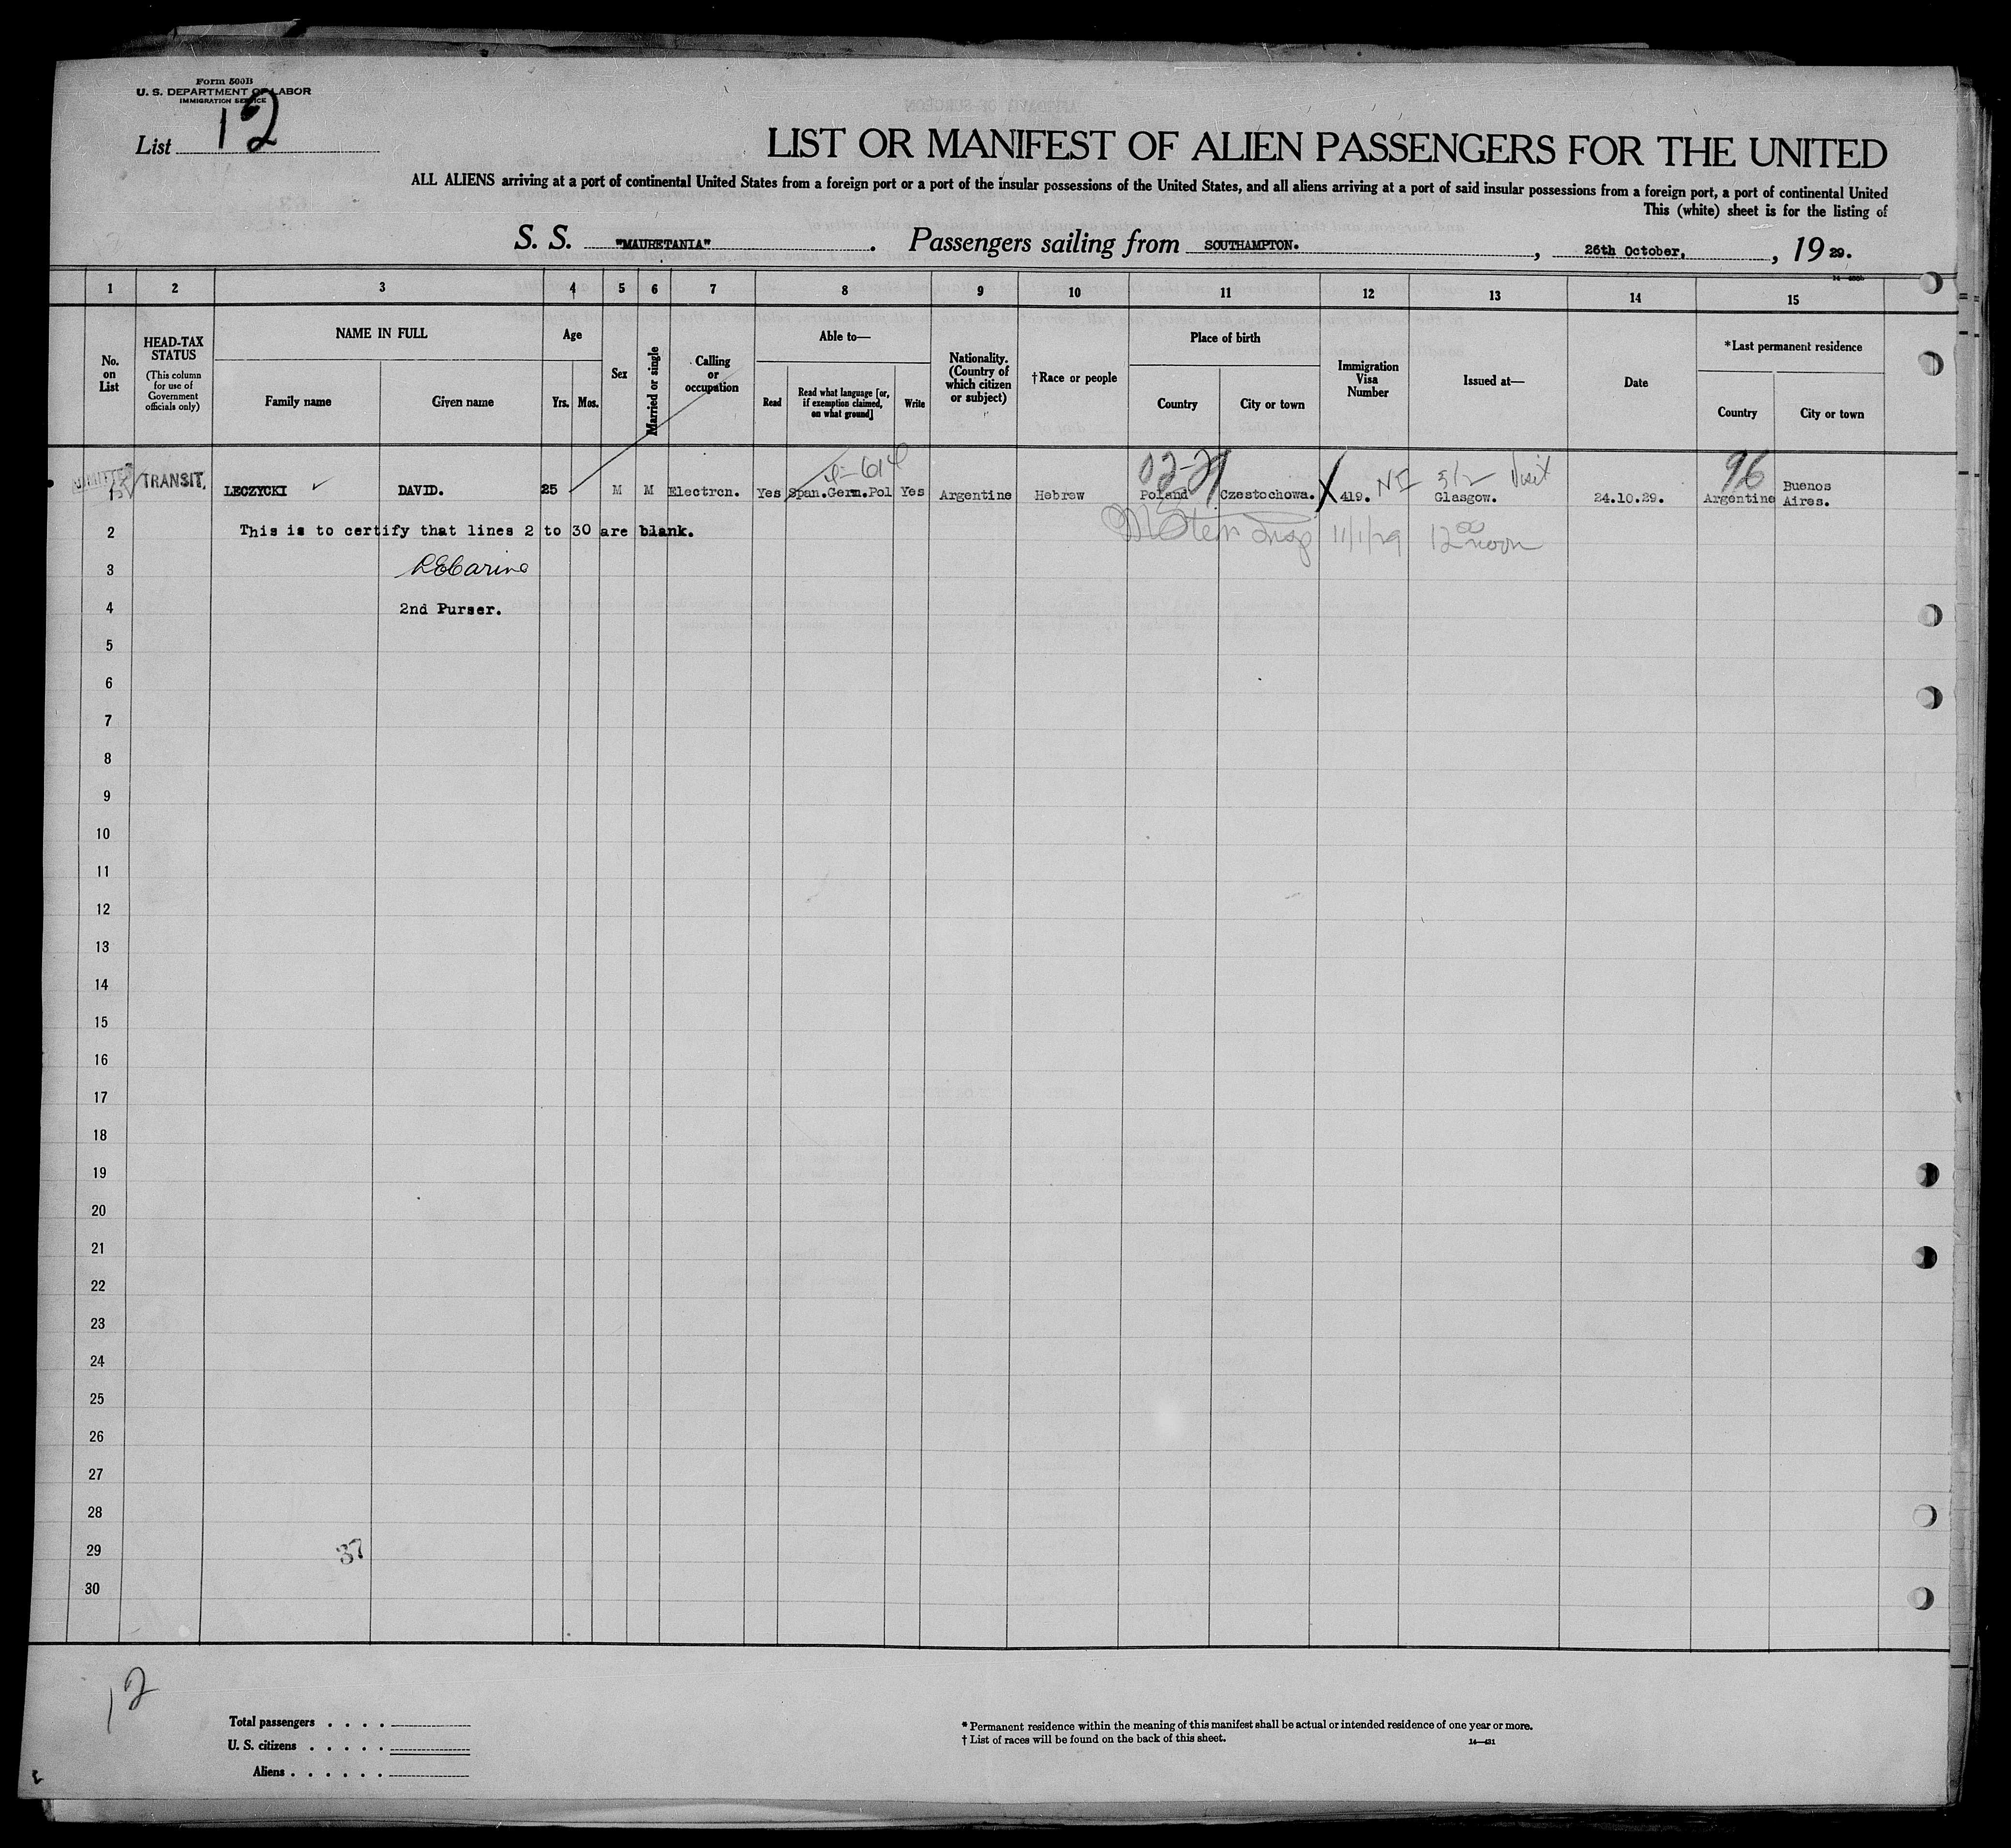 Form 500B
U. S. DEPARTMENT OF LABOR
IMMIGRATION SERVICE
List 12
LIST OR MANIFEST OF ALIEN PASSENGERS FOR THE UNITED
ALL ALIENS arriving at a port of continental United States from a foreign port or a port of the insular possessions of the United States, and all aliens arriving at a port of said insular possessions from a foreign port, a port of continental United
This (white) sheet is for the listing of
S. S. "MAURETANIA". Passengers sailing from SOUTHAMPTON., 26th October, , 19 29.
1 2 3 4 5 6 7 8 9 10 11 12 13 14 15
No. on List
HEAD-TAX STATUS
(This column for use of Government officials only)
NAME IN FULL
Family name
Given name
Age
Yrs. Mos.
Sex
Married or single
Calling or occupation
Able to—
Read
Read what language [or, if exemption claimed, on what ground]
Write
Nationality. (Country of which citizen or subject)
†Race or people
Place of birth
Country
City or town
Immigration Visa Number
Issued at—
Date
*Last permanent residence
Country
City or town
02-21 96
1 TRANSIT. LECZYCKI DAVID. 25 M M Electrcn. Yes Span.Germ.Pol Yes Argentine Hebrew Poland Czestochowa. 419. Glasgow. Visit 24.10.29. Argentine Buenos Aires.
2 This is to certify that lines 2 to 30 are blank. 11/1/29 12 00 noon
3
4 2nd Purser.
5
6
7
8
9
10
11
12
13
14
15
16
17
18
19
20
21
22
23
24
25
26
27
28
29 37
30
12
Total passengers . . . .
U. S. citizens . . . . .
Aliens . . . . . .
* Permanent residence within the meaning of this manifest shall be actual or intended residence of one year or more.
† List of races will be found on the back of this sheet. 14—431